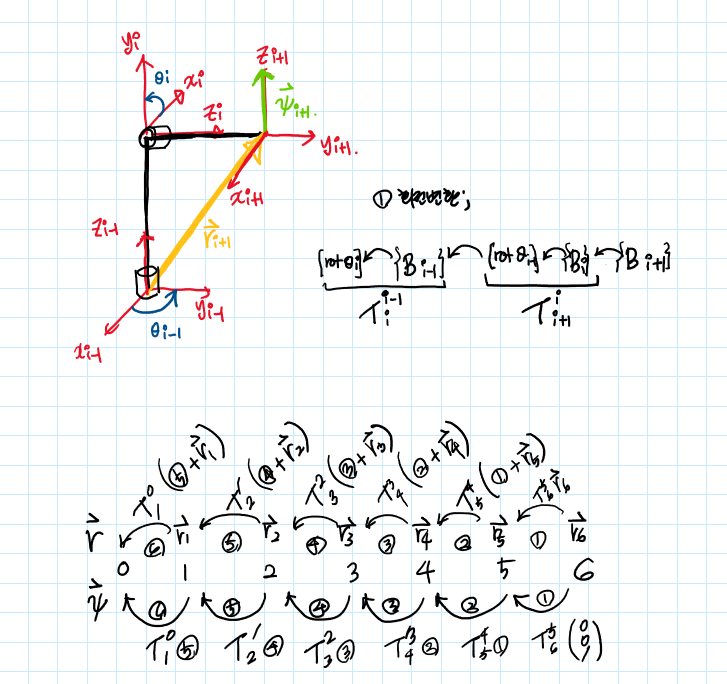 yi
θi
xi
zi
zi+1
ψ⃗i+1.
yi+1.
xi+1
r⃗i+1
zi-1
yi-1
θi-1
xi-1
① 회전변환;
[rot θi] {Bi-1} [rot θi-1] {Bi} {Bi+1}
Tᵢⁱ⁻¹ Tᵢ₊₁ⁱ
T₁⁰(⑤+r⃗1) T₂¹(④+r⃗2) T₃²(③+r⃗3) T₄³(②+r⃗4) T₅⁴(①+r⃗5) T₆⁵r⃗6
r⃗ r⃗1 r⃗2 r⃗3 r⃗4 r⃗5 r⃗6
⑥ ⑤ ④ ③ ② ①
0 1 2 3 4 5 6
ψ⃗ ⑥ ⑤ ④ ③ ② ①
T₁⁰⑤ T₂¹④ T₃²③ T₄³② T₅⁴① T₆⁵(0 0 1)